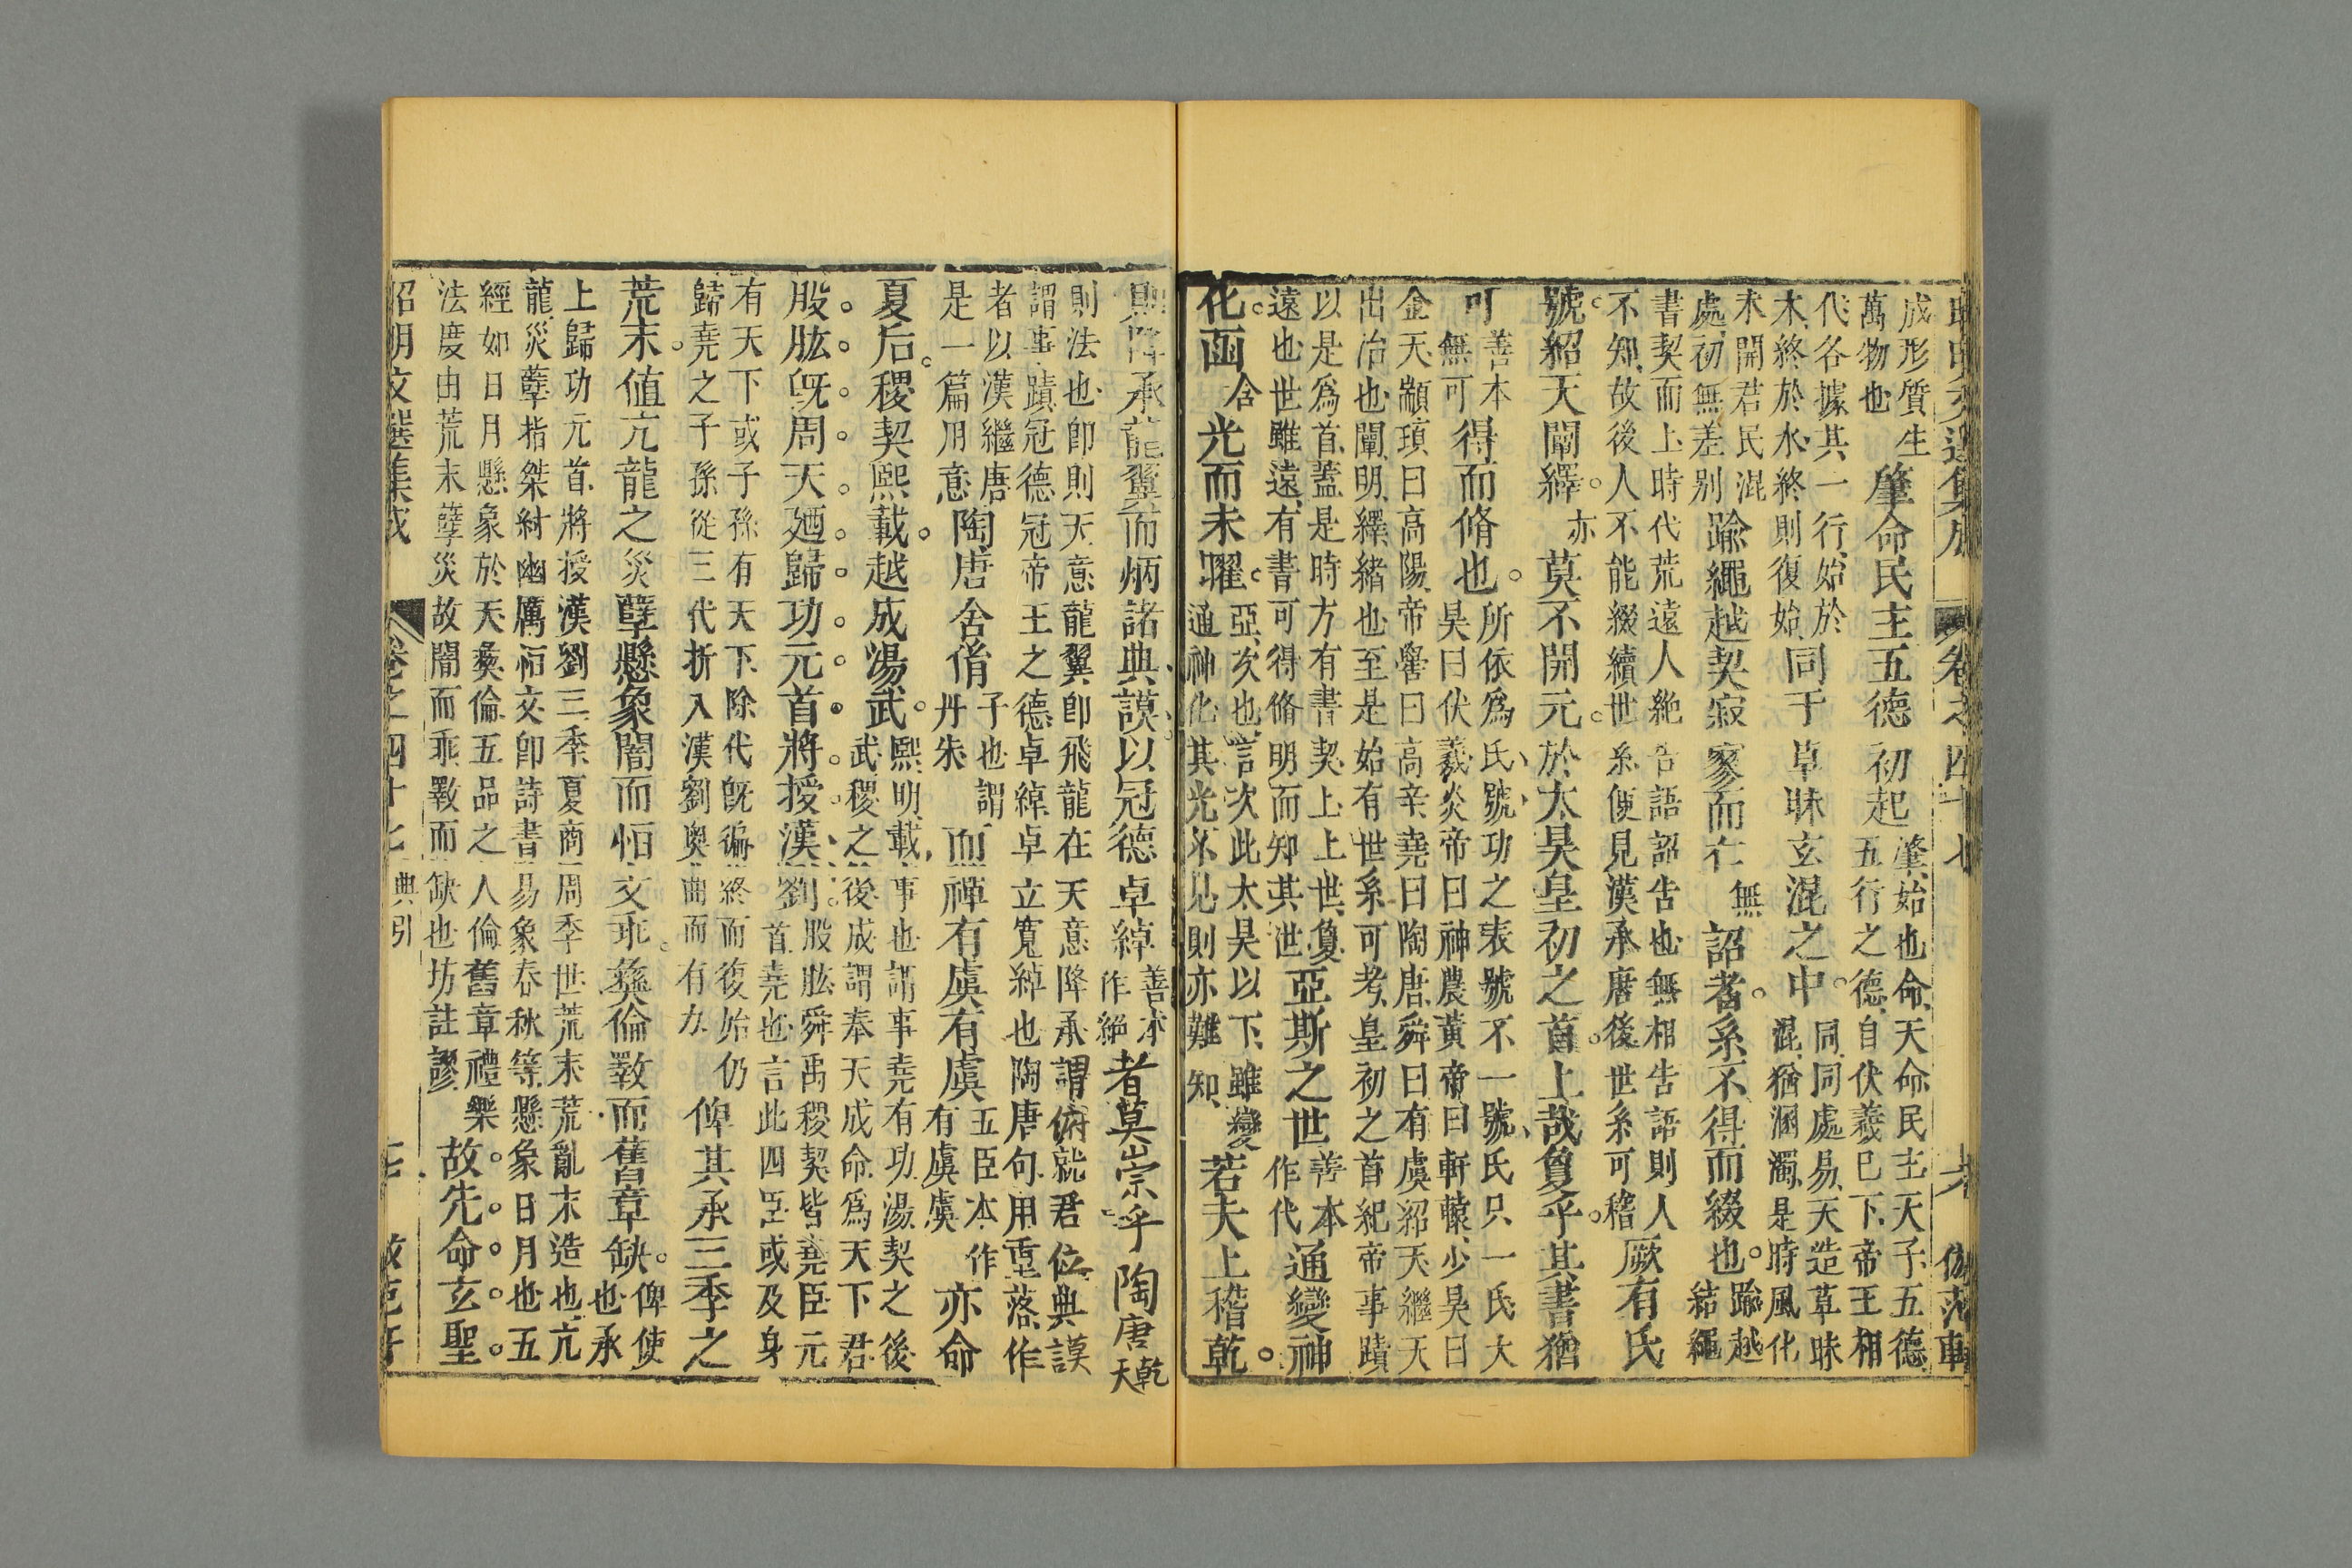 成形質生
萬物也
肇命民主五德
初起
肇始也命天命民主天子五德
五行之德自伏羲已下帝王相
代各據其一行始於
木終於水終則復始
同于
草昧玄混之中
同同處易天造草昧
混猶溷濁是時風化
未開君民混
處初無差别
踰繩越契寂
寥而亡
無
詔者系不得而綴也
踰越
結繩
書契而上時代荒遠人絶告語詔告也無相告語則人
不知故後人不能綴續世系使見漢承唐後世系可稽
厥有氏
號紹天闡繹
亦
莫不開元
於太昊皇初之首上哉敻乎其書猶
可
善本
無可
得而脩也
所依爲氏號功之表號不一號氏只一氏大
昊曰伏羲炎帝曰神農黃帝曰軒轅少昊曰
金天顓頊曰高陽帝嚳曰高辛堯曰陶唐舜曰有虞紹天繼天
出治也闡明繹緒也至是始有世系可考皇初之首紀帝事蹟
以是爲首蓋是時方有書契上上世敻
遠也世雖遠有書可得脩明而知其世
亞斯之世
善本
作代
通變神
化函
含
光而未曜
亞次也言次此太昊以下雖變
通神化其光不見則亦難知
若夫上稽乾
則降承龍翼而炳諸典謨以冠德
卓綽
善本
作絶
者莫崇乎
陶唐
乾
天
則法也卽則天意龍翼卽飛龍在天意降承謂俯就君位典謨
謂事蹟冠德冠帝王之德卓綽卓立寬綽也陶唐句用重落作
者以漢繼唐
是一篇用意
陶唐
舍𦙍
子也謂
丹朱
而
禪有虞有虞
五臣本作
有虞虞
亦命
夏后稷契熙載越成湯武
熙明載事也謂事堯有功湯契之後
武稷之後成謂奉天成命爲天下君
股肱旣周天廼歸功元首將授漢劉
股肱舜禹稷契皆堯臣元
首堯也言此四臣或及身
有天下或子孫有天下除代旣徧終而復始仍
歸堯之子孫從三代折入漢劉奥曲而有力
俾其承三季之
荒末值亢龍之災孽懸象闇而恒文乖彝倫斁而舊章缺
俾使
也承
上歸功元首將授漢劉三季夏商周季世荒末荒亂末造也亢
龍災孽指桀紂幽厲恒文卽詩書易象春秋等懸象日月也五
經如日月懸象於天彝倫五品之人倫舊章禮樂
法度由荒末孽災故闇而乖斁而缺也坊註謬
故先命玄聖
昭明文選集成
卷之四十七
典引